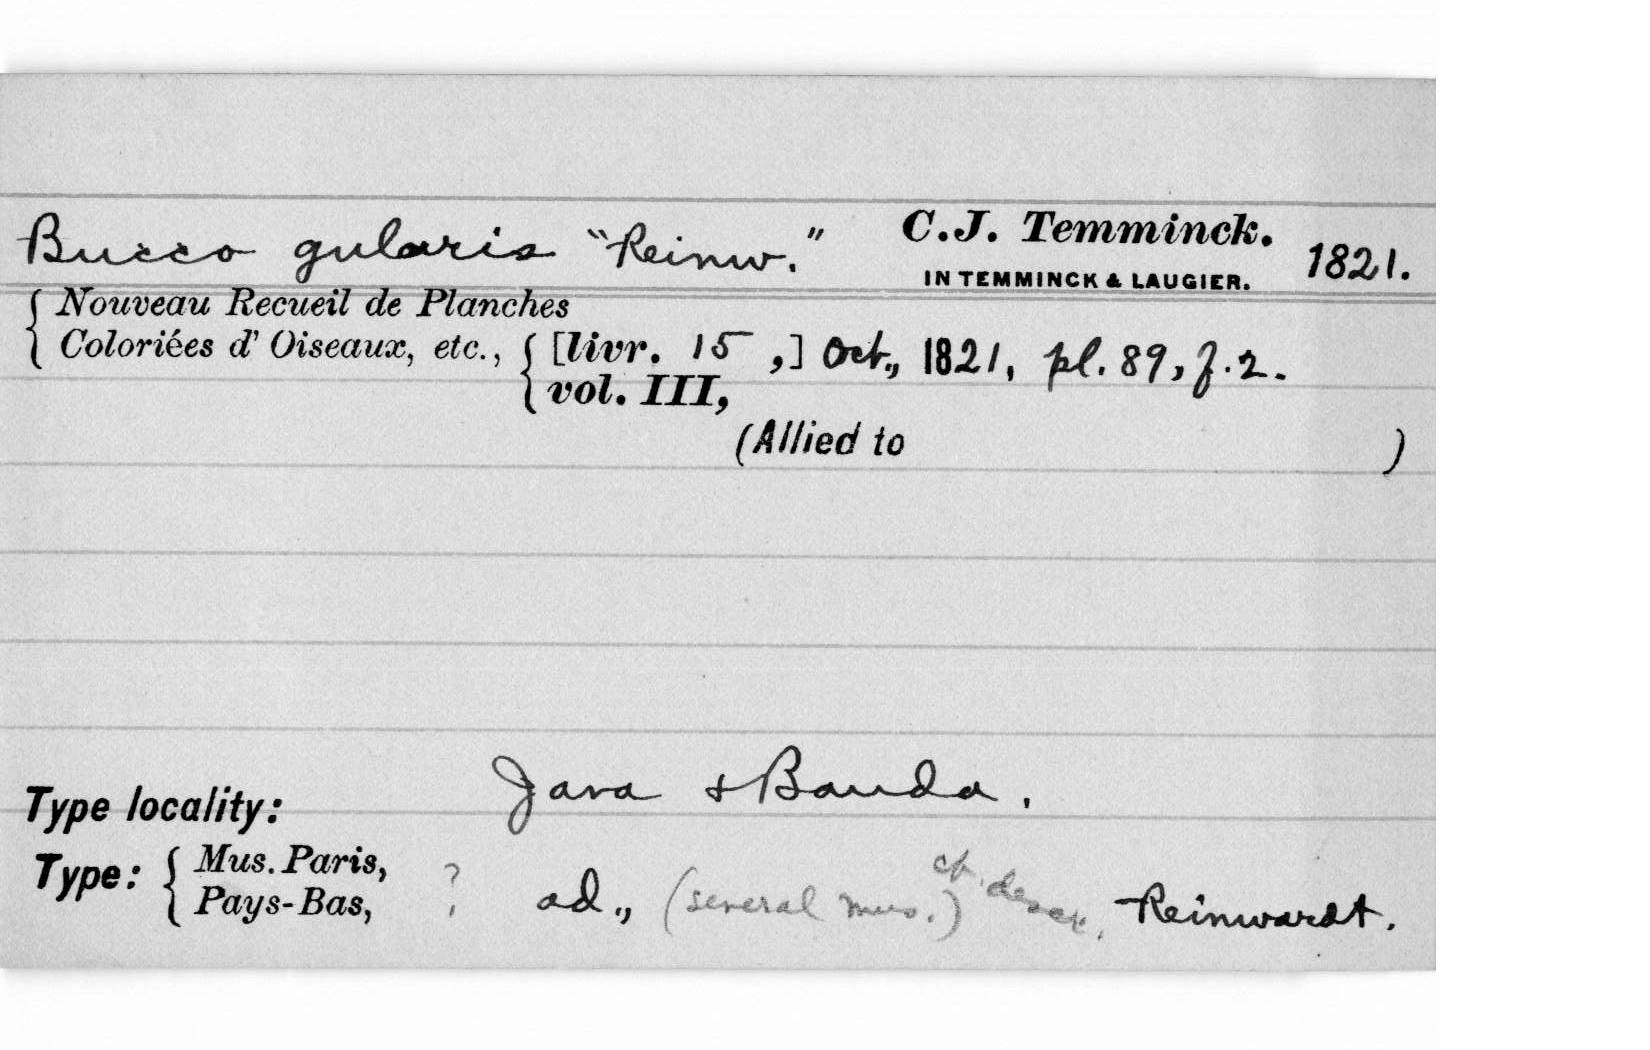 Bucco gularis "Reinw." C.J. Temminck. 1821.
IN TEMMINCK & LAUGIER.
Nouveau Recueil de Planches
Coloriées d' Oiseaux, etc., [livr. 15 ,] Oct., 1821, pl. 89, f. 2.
vol. III,
(Allied to )
Type locality: Java & Banda.
Type: Mus. Paris,
Pays-Bas, ? ad., (several mus.) cf. descr. Reinwardt.